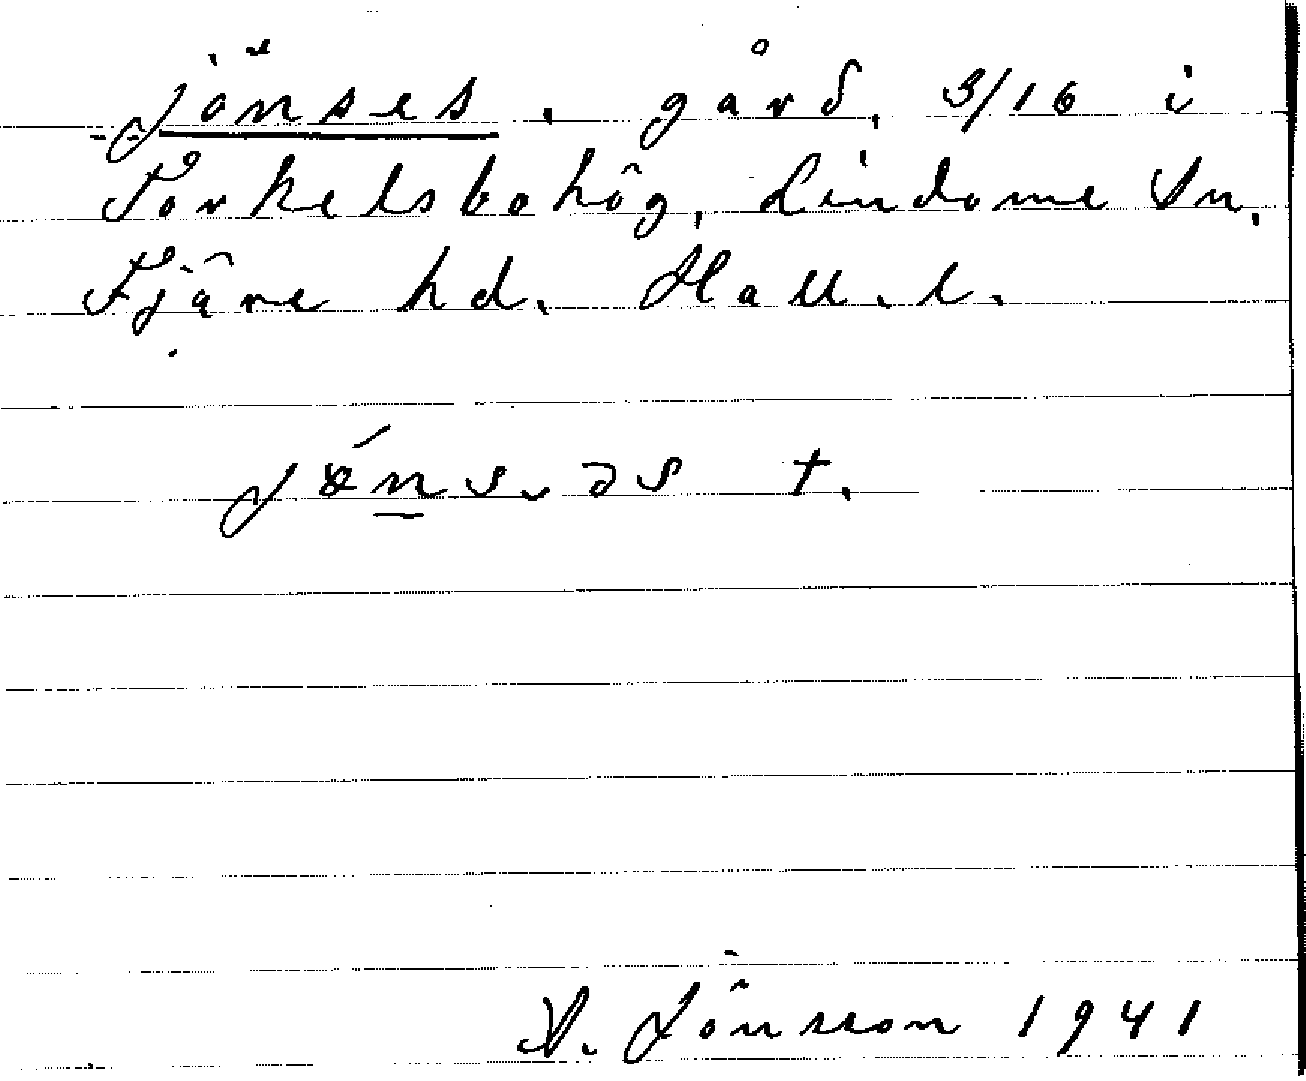 Jönses, gård, 3/16 i
Torkelsbohög, Lindome Sn,
Fjäre hd. Hall. l.
A. Jönsson 1941